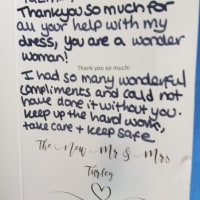 Thankyou so much for
all your help with my
dress, you are a wonder
woman!
Thank you so much!
I had so many wonderful
compliments and could not
have done it without you.
Keep up the hard work,
take care + keep safe
The New Mr & Mrs
Turley